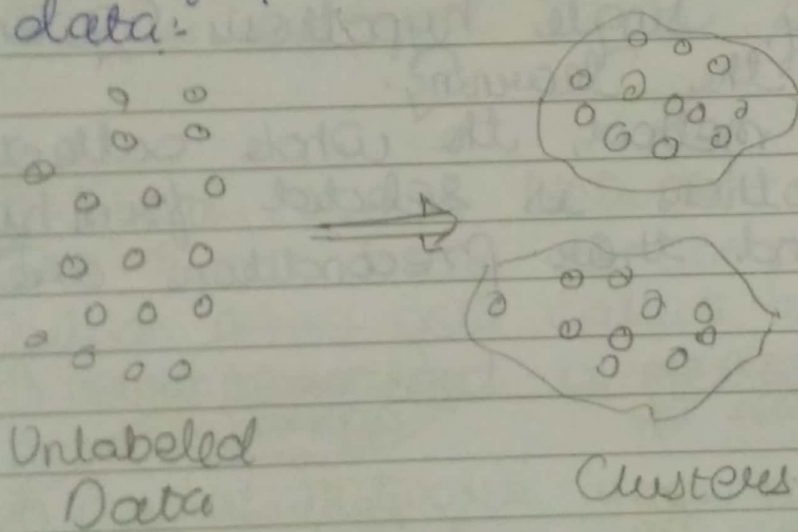 data:-
Unlabeled
Data
Clusters